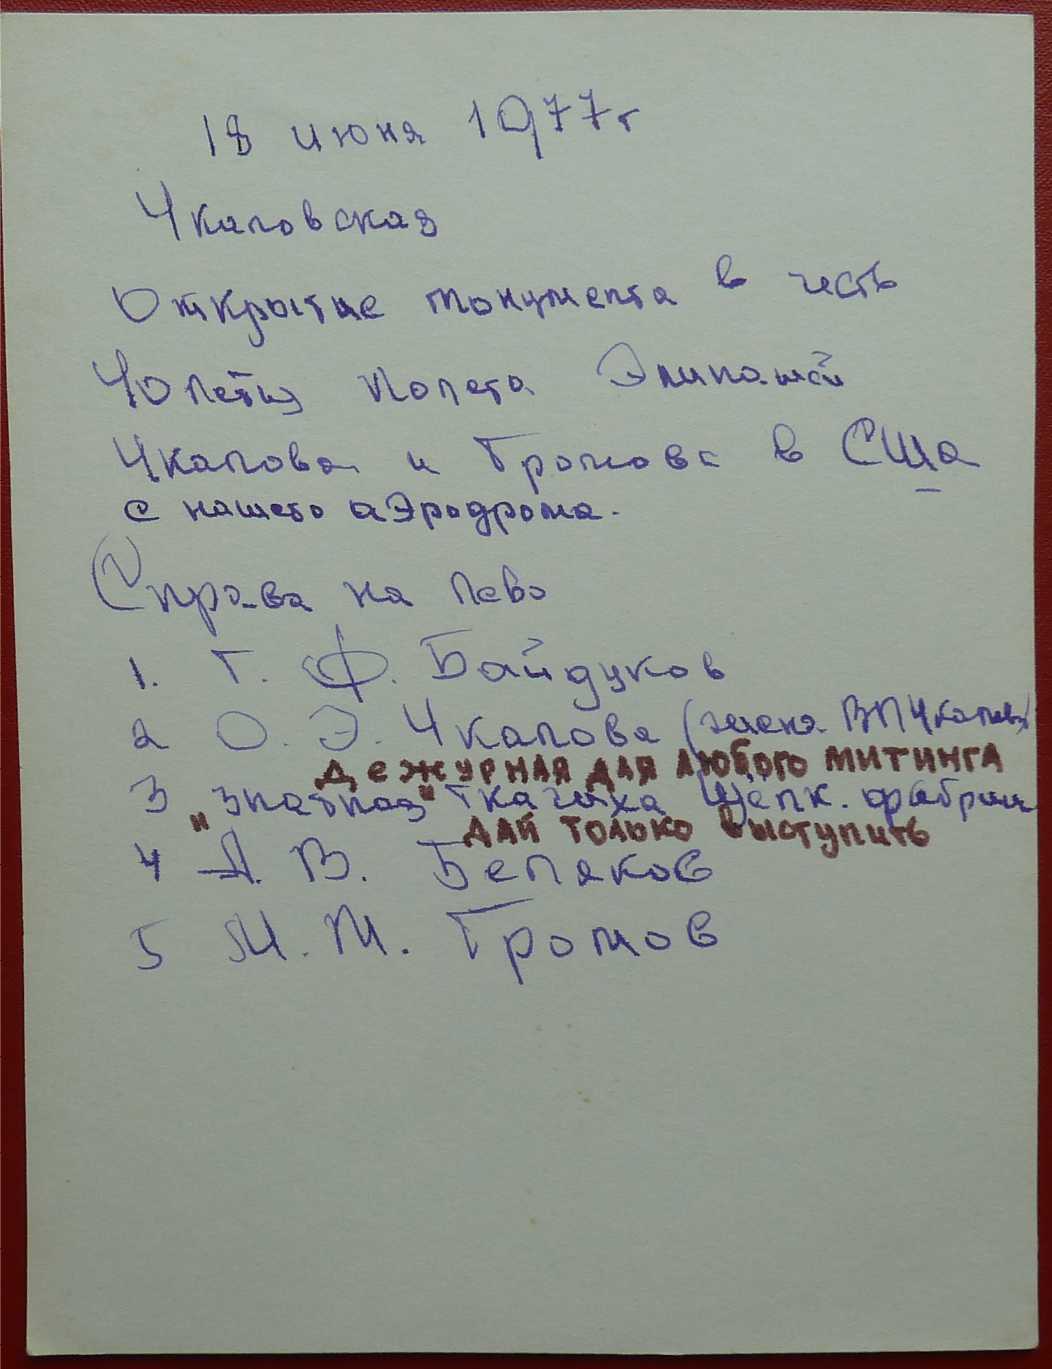 18 июня 1977г
Чкаловская
Открытие монумента в честь
40 летия полета Экипажей
Чкалова и Громова в США
с нашего аЭродрома.
Справа на лево
1. Г. Ф. Байдуков
2 О. Э. Чкалова (жена ВПЧкалова)
ДЕЖУРНАЯ ДЛЯ ЛЮБОГО МИТИНГА
3 "знатная" ткачиха Щелк. фабрики
ДАЙ ТОЛЬКО ВЫСТУПИТЬ
4 А. В. Беляков
5 М. М. Громов